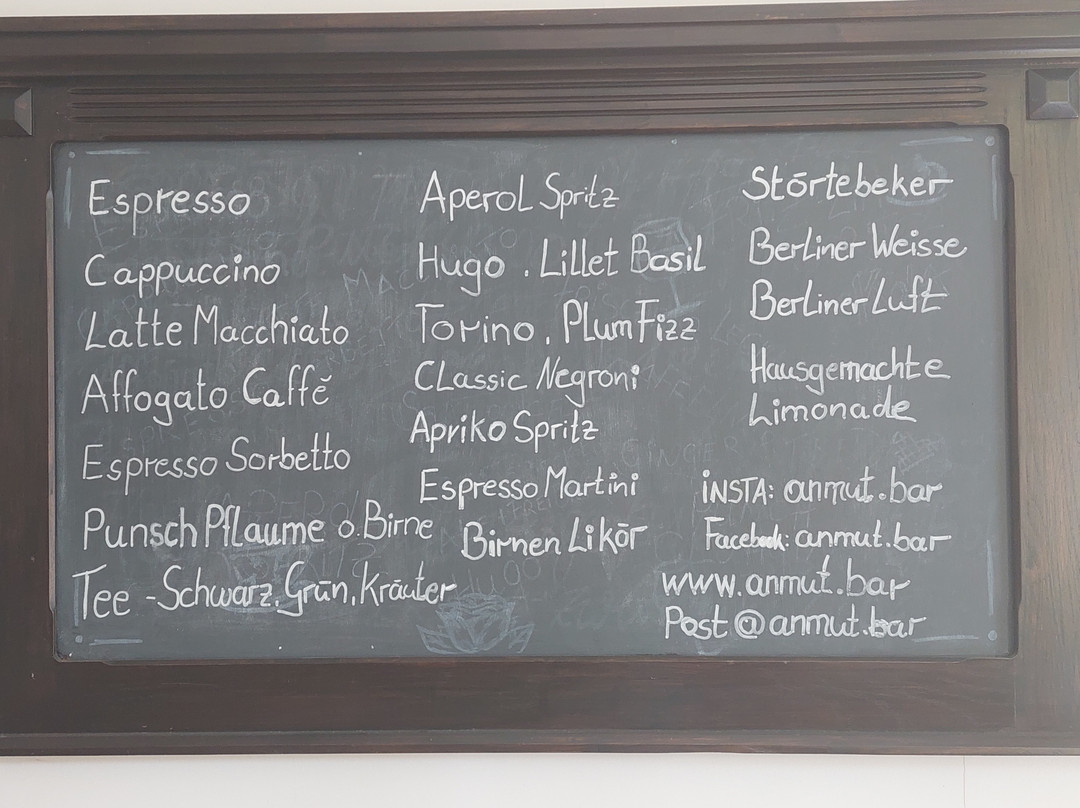 Espresso
Cappuccino
Latte Macchiato
Affogato Caffě
Espresso Sorbetto
Punsch Pflaume o. Birne
Tee - Schwarz, Grün, Kräuter
Aperol Spritz
Hugo . Lillet Basil
Torino . Plum Fizz
Classic Negroni
Apriko Spritz
Espresso Martini
Birnen Likör
Störtebeker
Berliner Weisse
Berliner Luft
Hausgemachte
Limonade
iNSTA: anmut.bar
Facebook: anmut.bar
www.anmut.bar
Post@anmut.bar